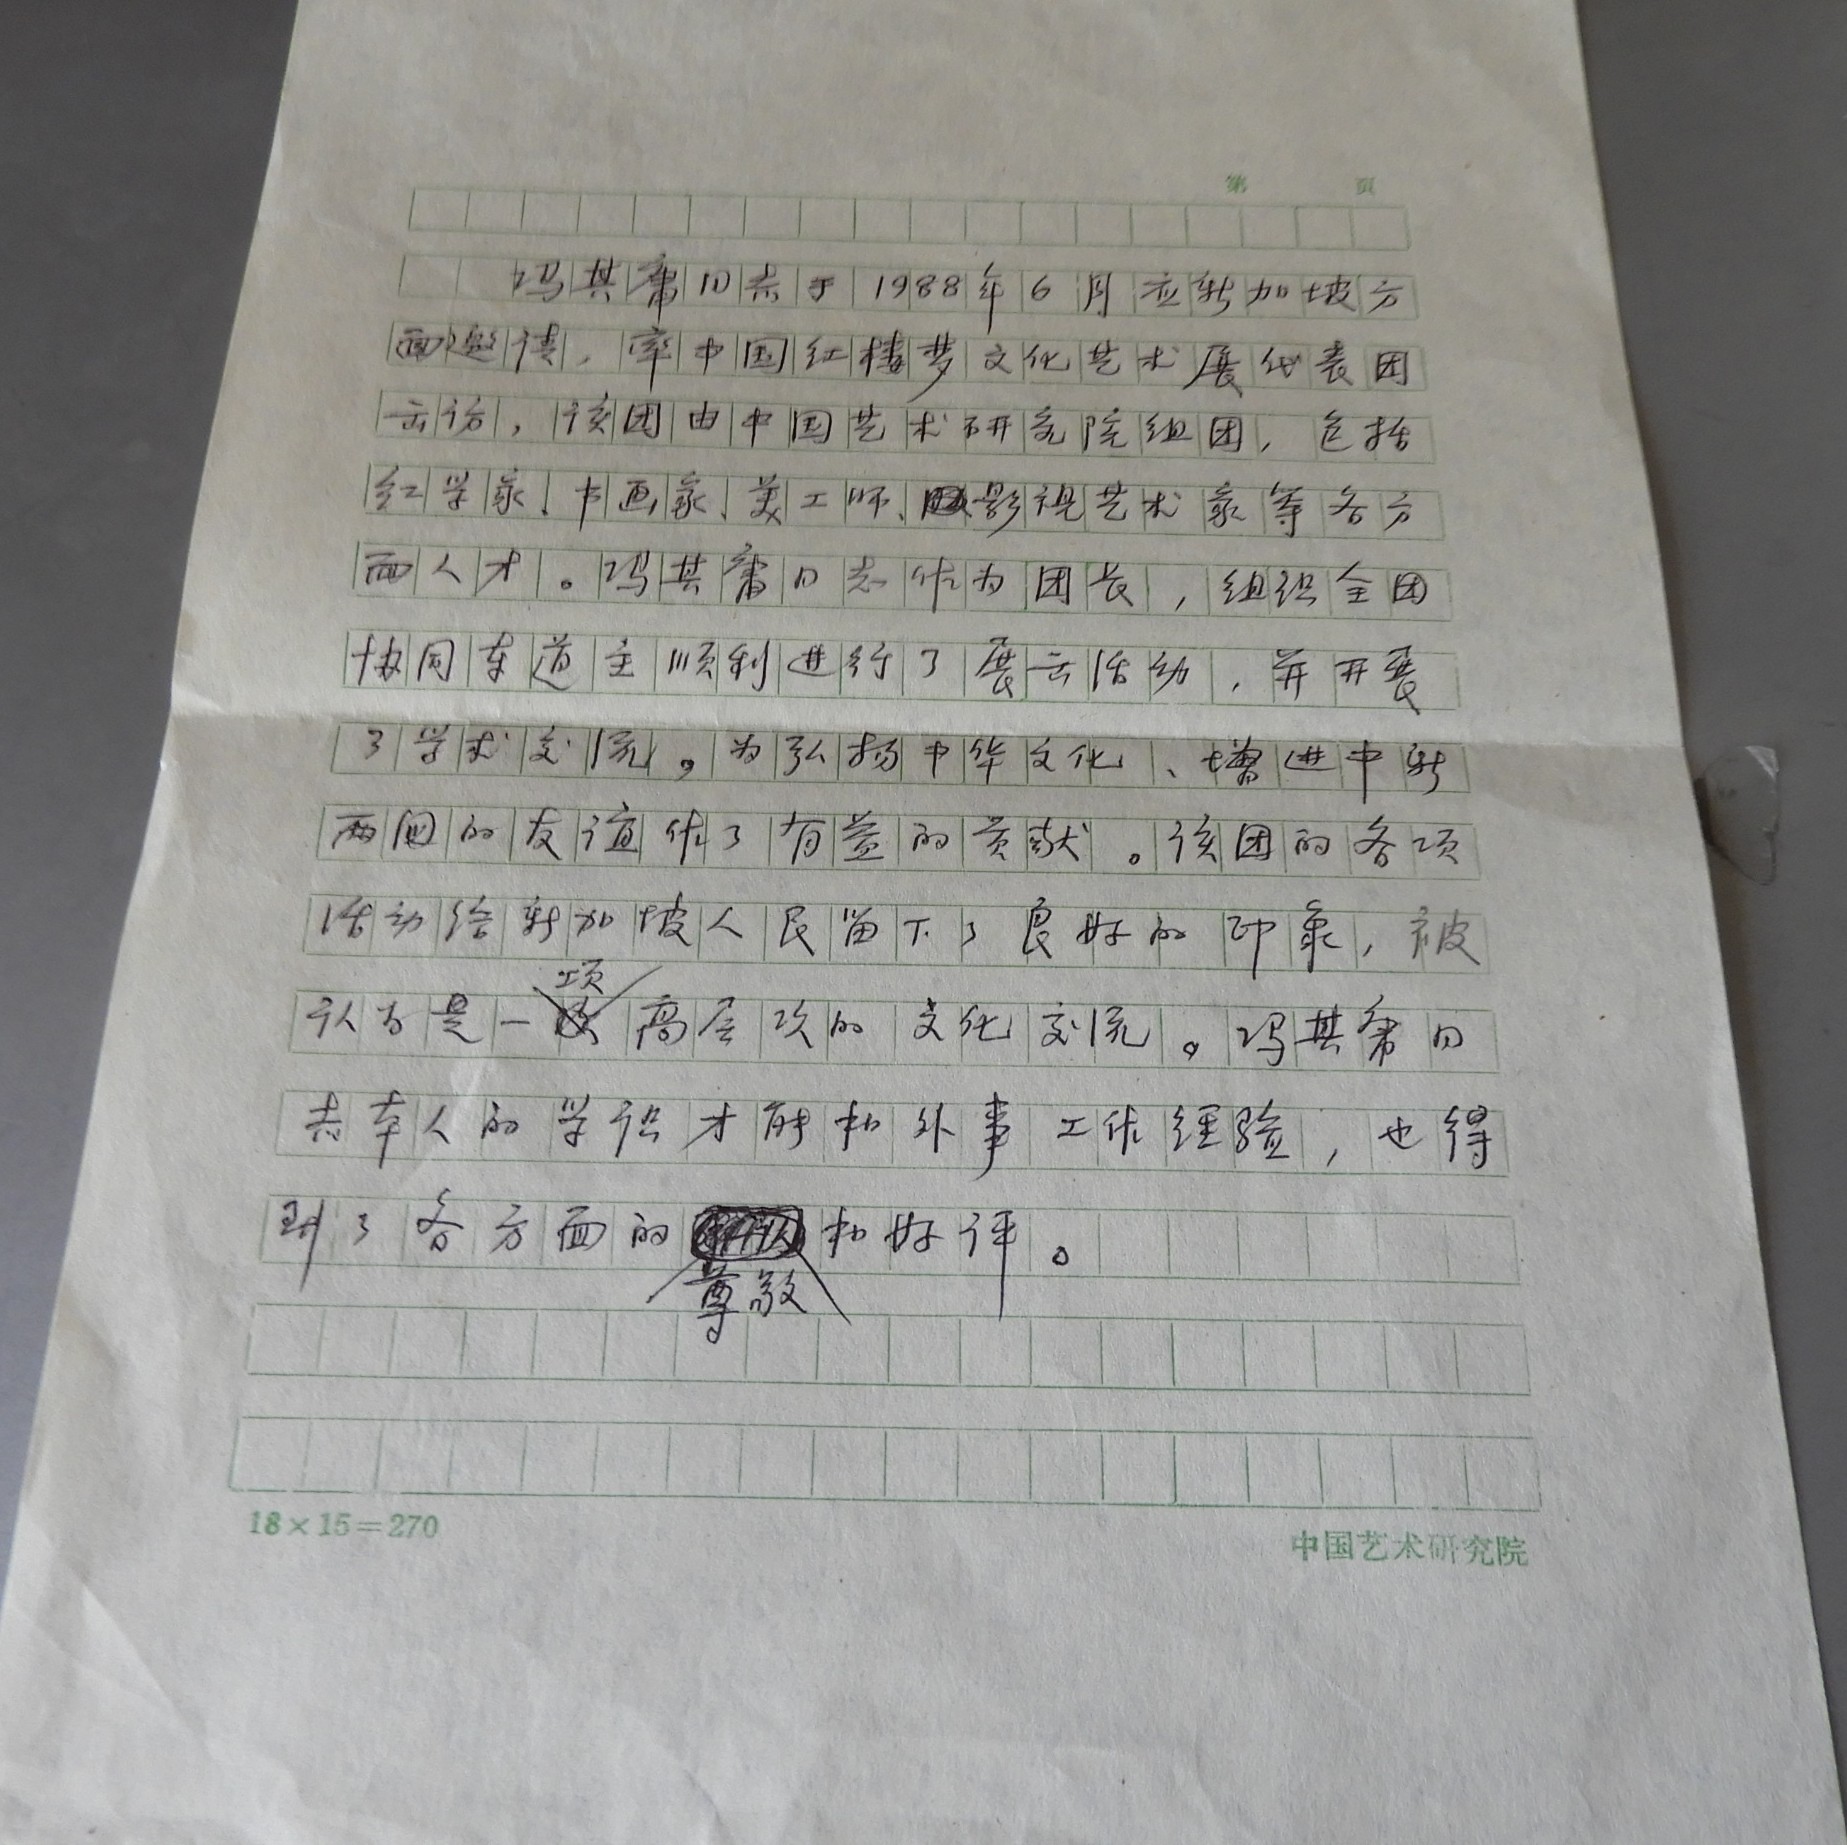 第 页
冯其庸同志于1988年6月应新加坡方
面邀请，率中国红楼梦文化艺术展代表团
去访，该团由中国艺术研究院组团，包括
红学家、书画家、美工师、影视艺术家等各方
面人才。冯其庸同志作为团长，组织全团
协同东道主顺利进行了展云活动，并开展
了学术交流。为弘扬中华文化、增进中新
两国的友谊作了有益的贡献。该团的各项
活动给新加坡人民留下了良好的印象，被
认为是一项高层次的文化交流。冯其庸同
志本人的学识才能和外事工作经验，也得
到了各方面的尊敬和好评。
18×15=270
中国艺术研究院